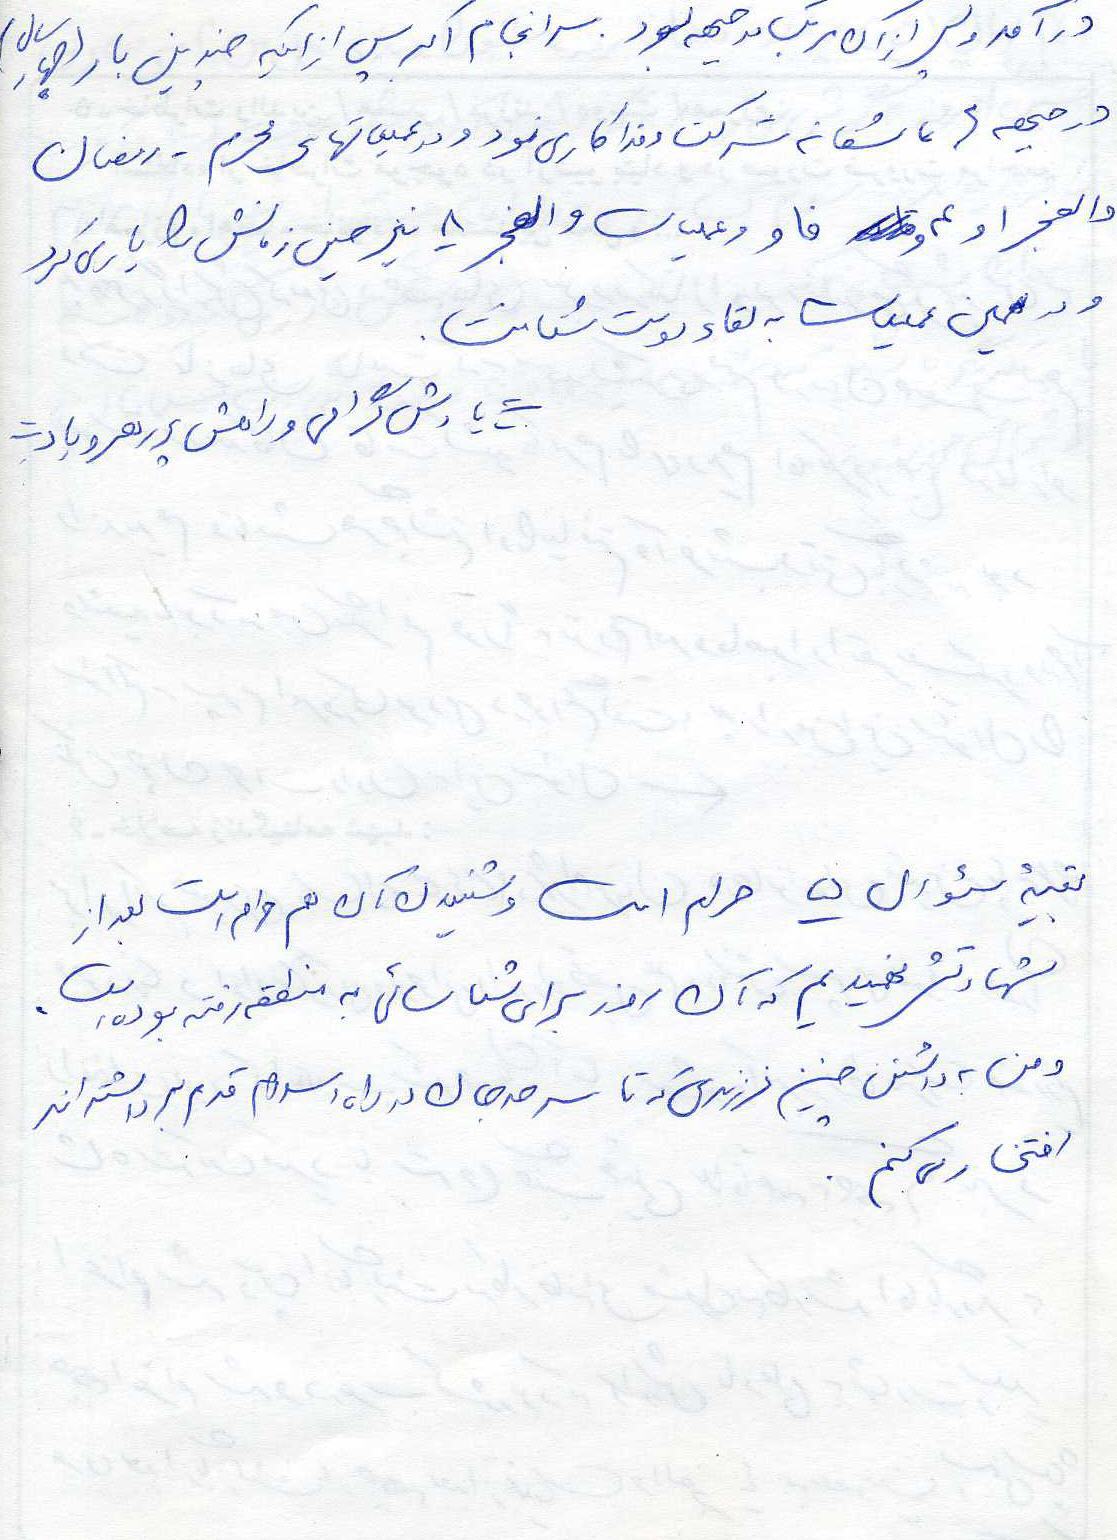 در آمد و پس از آن مرتب در جبهه بود. سرانجام اکبر پس از اینکه چندین بار (چهار سال)
در جبهه ها عاشقانه شرکت و فداکاری نمود و در عملیاتهای محرم - رمضان
والفجر او ۴ و فاو و عملیات والفجر ۸ نیز حسین زمانش را یاری کرد
و در همین عملیات به لقاء دوست شتافت.
یادش گرامی و راهش پر رهرو باد
بقیهٔ سئوال ۵ حرام است و شنیدن آن هم حرام است بعد از
شهادتش فهمیدیم که آن روز برای شناسائی به منطقه رفته بوده است.
و من به داشتن چنین فرزندی که تا سر حد جان در راه اسلام قدم برداشته اند
افتخار می کنم.